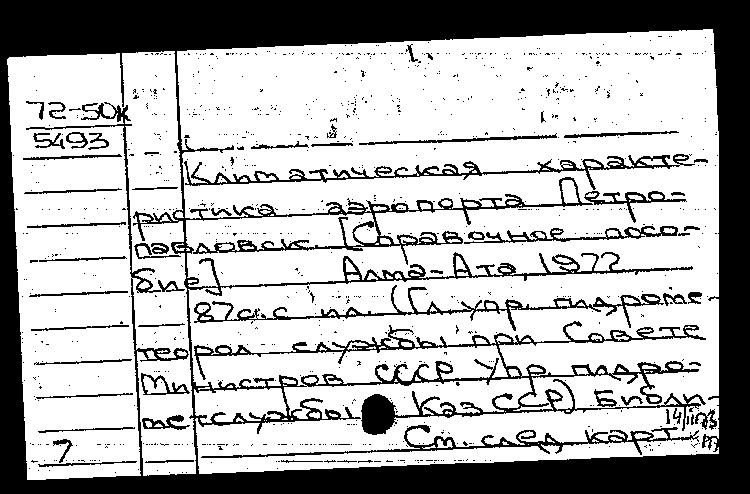 72-50к
5493
Климатическая характе-
ристика аэропорта Петро-
павловск. [Справочное посо-
бие] Алма-Ата, 1972.
87с. с ил. (Гл. упр. гидроме-
теорол. службы при Совете
Министров СССР. Упр. гидро-
метслужбы Каз ССР). Библи-
См. след. карт.
7